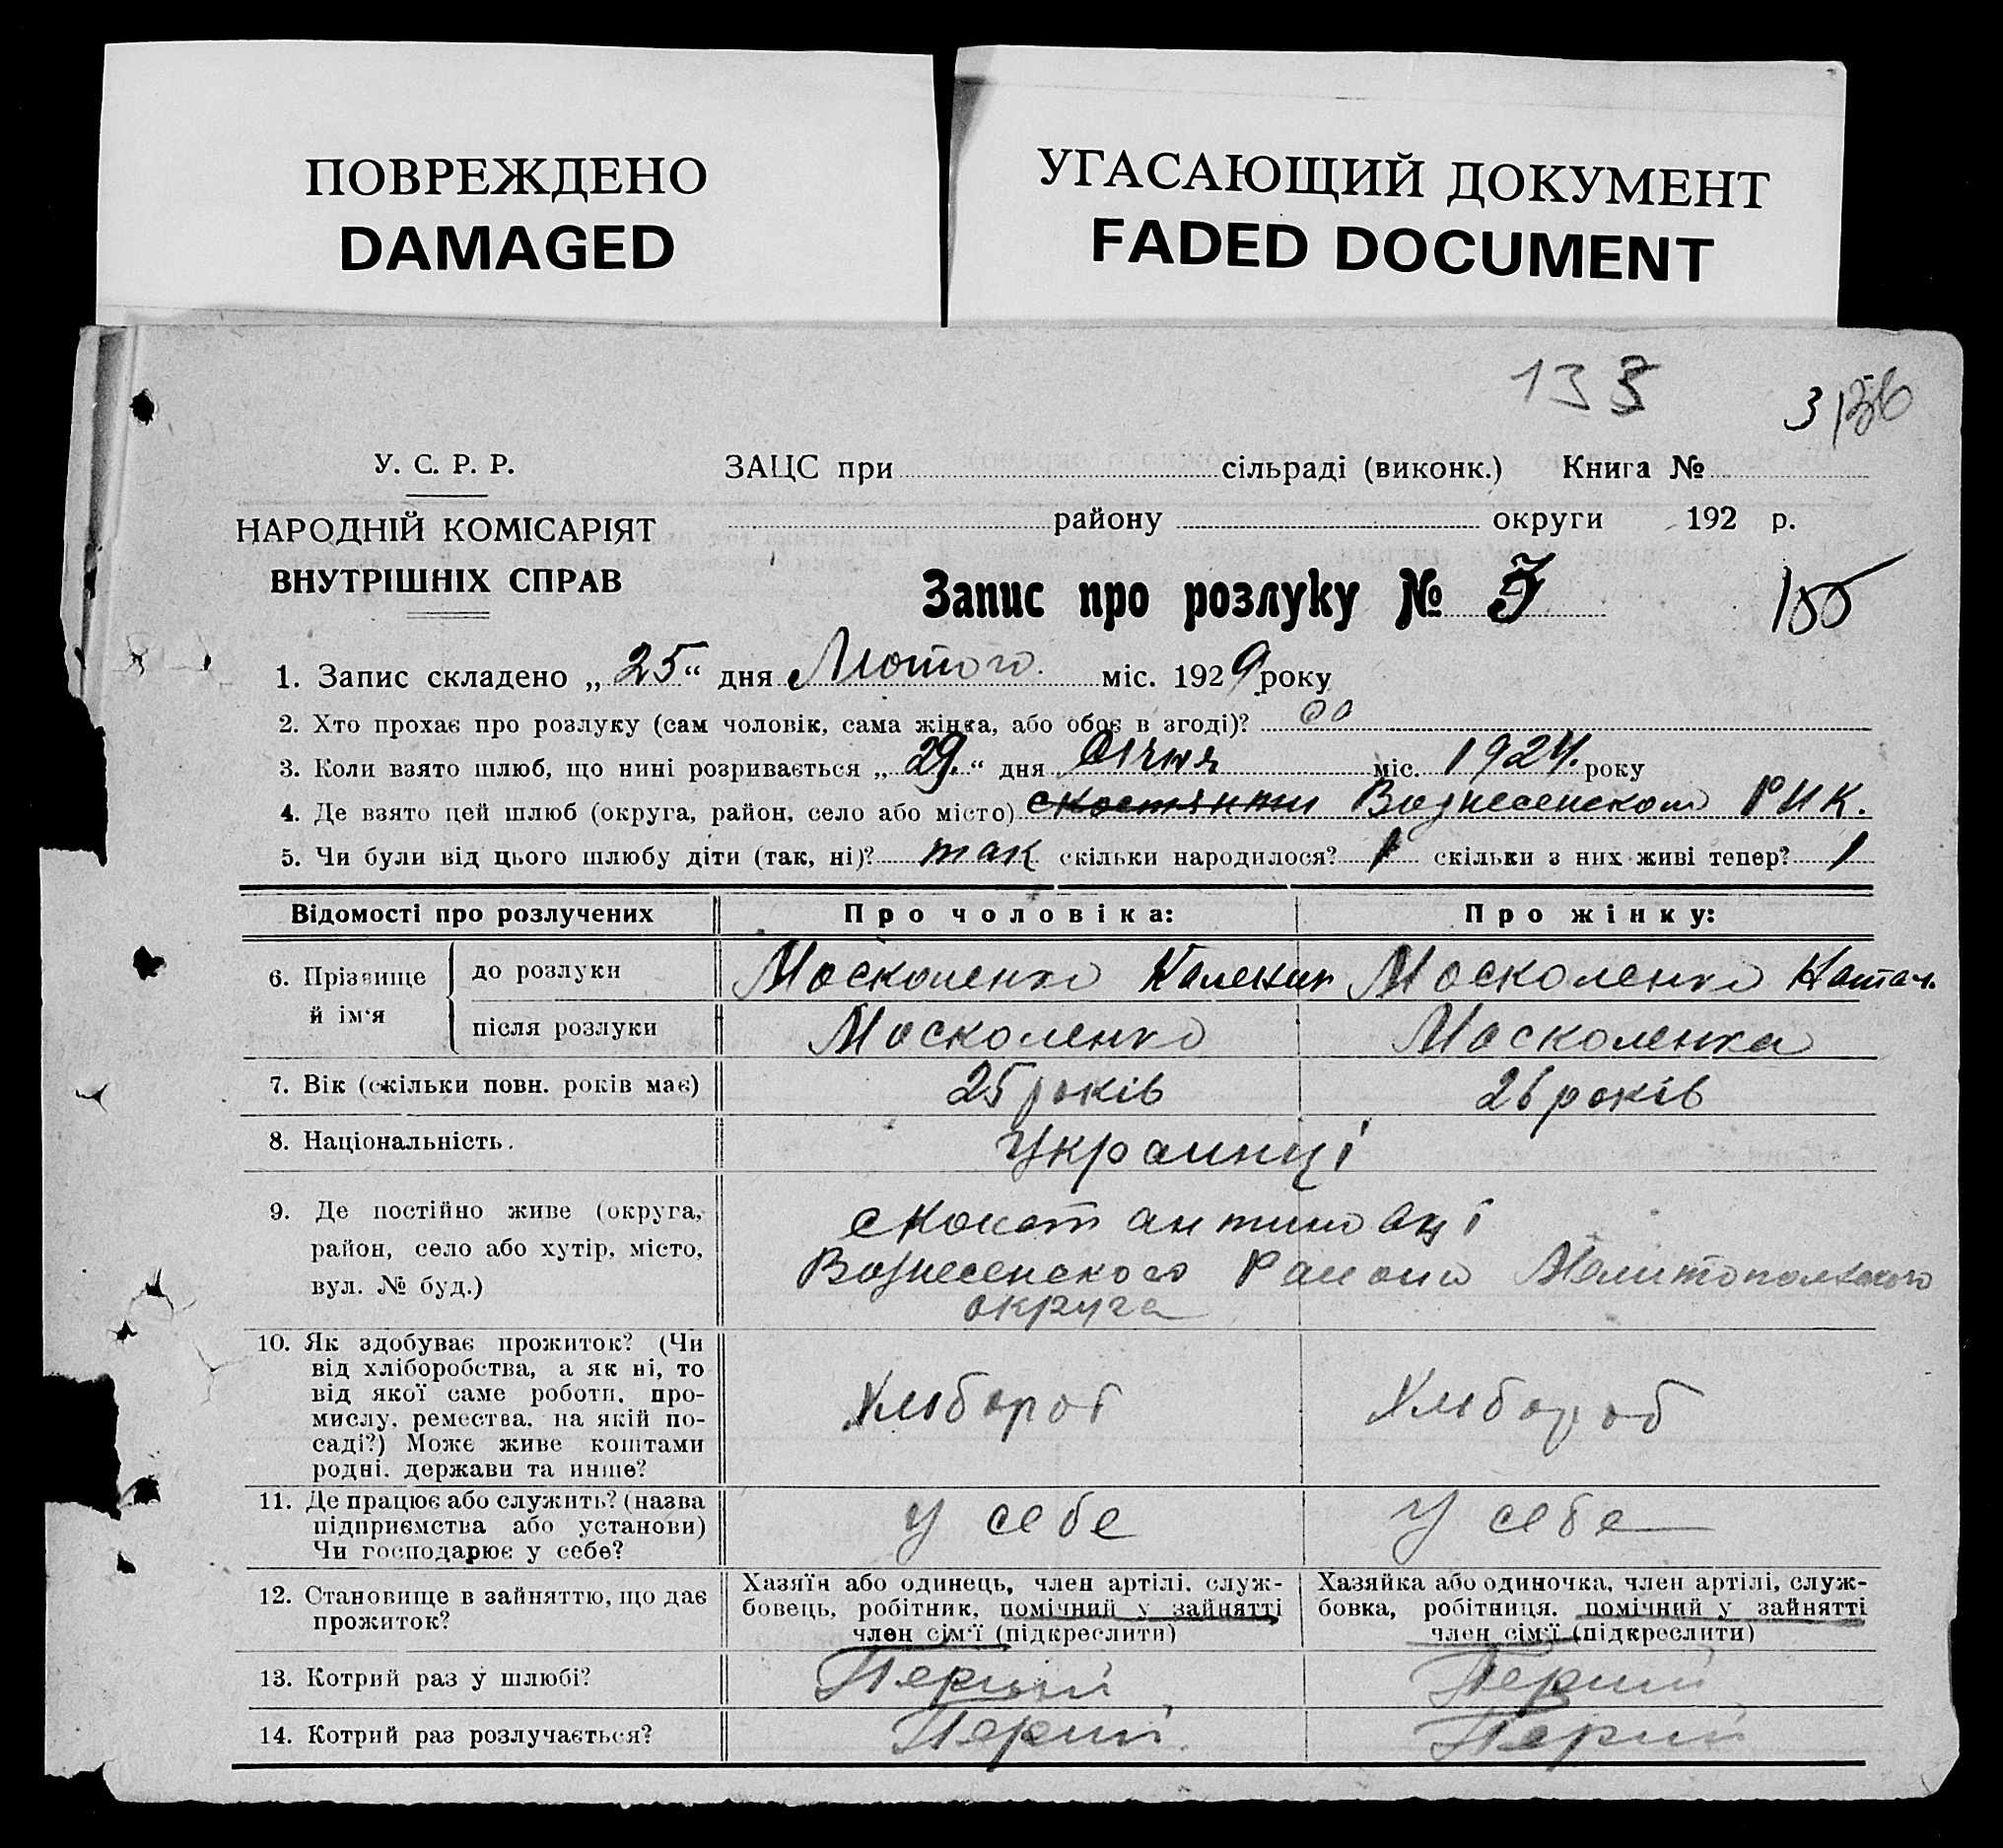 ПОВРЕЖДЕНО
DAMAGED
УГАСАЮЩИЙ ДОКУМЕНТ
FADED DOCUMENT
133
У. С. Р. Р.
НАРОДНІЙ КОМІСАРІЯТ
ВНУТРІШНІХ СПРАВ
ЗАЦС при сільраді (виконк.) Книга №
району округи 192 р.
Запис про розлуку №
1. Запис складено „25“ дня Лютого міс. 1929 року
2. Хто прохає про розлуку (сам чоловік, сама жінка, або обоє в згоді)?
3. Коли взято шлюб, що нині розривається „29.“ дня Січня міс. 1924. року
4. Де взято цей шлюб (округа, район, село або місто) Вознесенском РИК.
5. Чи були від цього шлюбу діти (так, ні)? так скільки народилося? 1 скільки з них живі тепер? 1
Відомості про розлучених Про чоловіка: Про жінку:
6. Прізвище й ім‘я
до розлуки Москоленко Каленик Москоленко Натал.
після розлуки Москоленко Москоленка
7. Вік (скільки повн. років має) 25 років 26 років
8. Національність. Украинці
9. Де постійно живе (округа, район, село або хутір, місто, вул. № буд.)
с Константиновці
Вознесенского Района Мелитопольского
округа
10. Як здобуває прожиток? (Чи
від хліборобства, а як ні, то
від якої саме роботи, про-
мислу, ремества, на якій по-
саді?) Може живе коштами
родні, держави та инше?
Хлібороб Хлібороб
11. Де працює або служить? (назва
підприємства або установи)
Чи господарює у себе?
у себе у себе
12. Становище в зайняттю, що дає
прожиток?
Хазяїн або одинець, член артілі, служ-
бовець, робітник, помічний у зайнятті
член сім‘ї (підкреслити)
Хазяйка або одиночка, член артілі, служ-
бовка, робітниця, помічний у зайнятті
член сім‘ї (підкреслити)
13. Котрий раз у шлюбі? Перший Перший
14. Котрий раз розлучається? Перший Перший